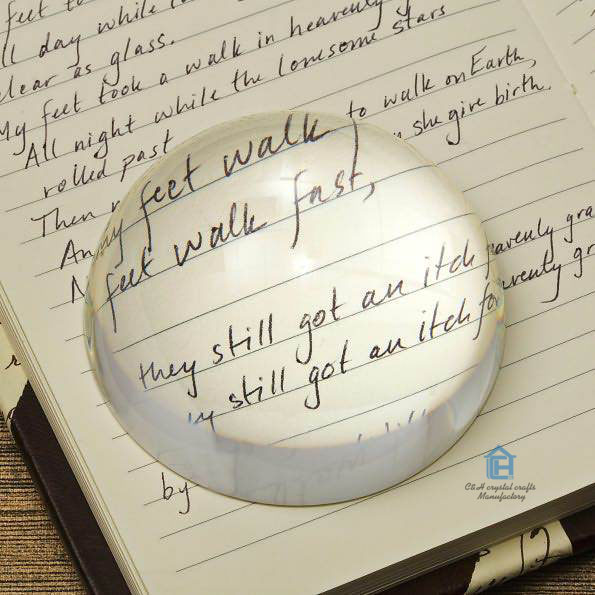 feet to
ll day while t
lear as glass.
My feet took a walk in heavenly g
All night while the lonesome stars
rolled past
to walk on Earth,
Then n
she give birth.
An my feet walk
N feet walk fast,
they still got an itch for heavenly gra
y still got an itch for heavenly gr
by
C&H crystal crafts
Manufactory